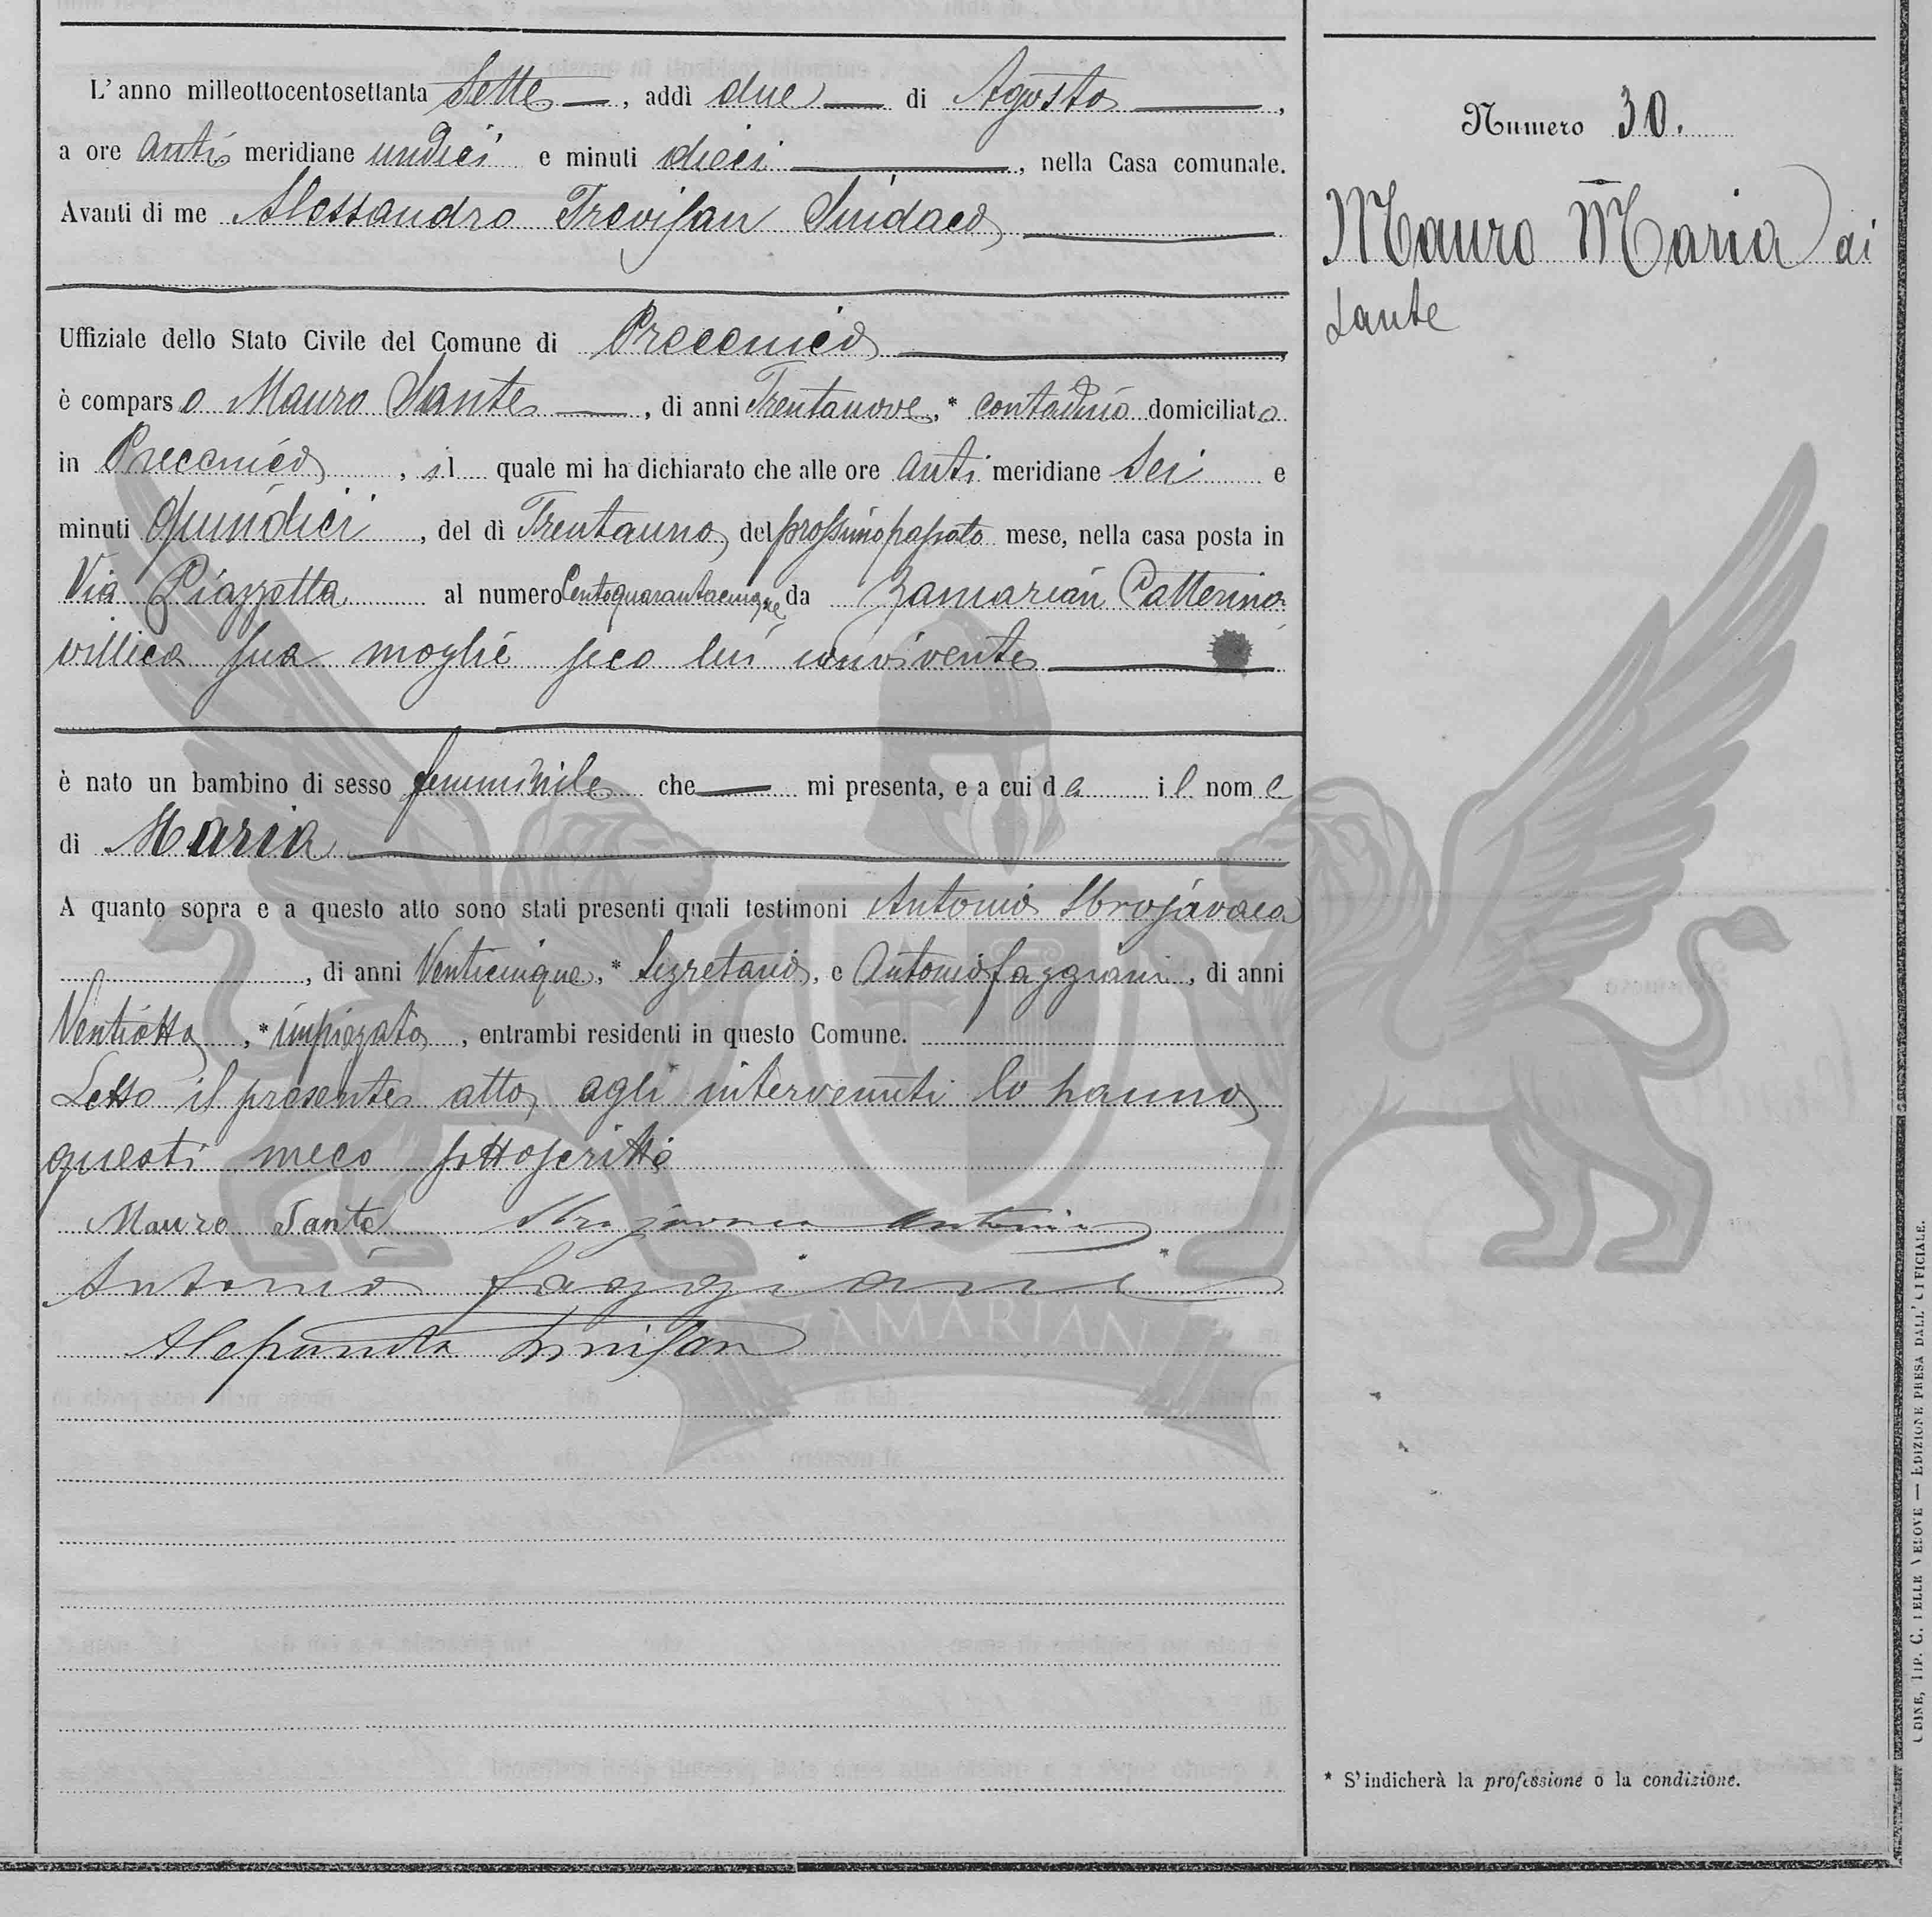 L'anno milleottocentosettanta Sette, addì due di Agosto,
a ore anti meridiane undici e minuti dieci, nella Casa comunale.
Avanti di me Alessandro Trevisan Sindaco
Uffiziale dello Stato Civile del Comune di Precenico
è comparso Mauro Sante, di anni Trentanove,* contadino domiciliato
in Precenico, il quale mi ha dichiarato che alle ore anti meridiane Sei e
minuti Quindici, del dì Trentauno, del prossimo passato mese, nella casa posta in
Via Piazzetta al numero Centoquarantacinque da Zamarian Catterina
villica sua moglie seco lui convivente
è nato un bambino di sesso femminile che mi presenta, e a cui da il nome
di Maria
A quanto sopra e a questo atto sono stati presenti quali testimoni Antonio Sbrojavaca
, di anni Venticinque,* Segretario, e Antonio Faggiani, di anni
Ventiotto,* impiegato, entrambi residenti in questo Comune.
Letto il presente atto agli intervenuti lo hanno
questi meco sottoscritto
Mauro Sante Sbrojavaca Antonio
Antonio Faggiani
Alessandro Trevisan
ZAMARIAN
Numero 30.
Mauro Maria di
Sante
* S'indicherà la professione o la condizione.
UDINE, TIP. C. DELLE VEDOVE — EDIZIONE PRESA DALL'UFFICIALE.